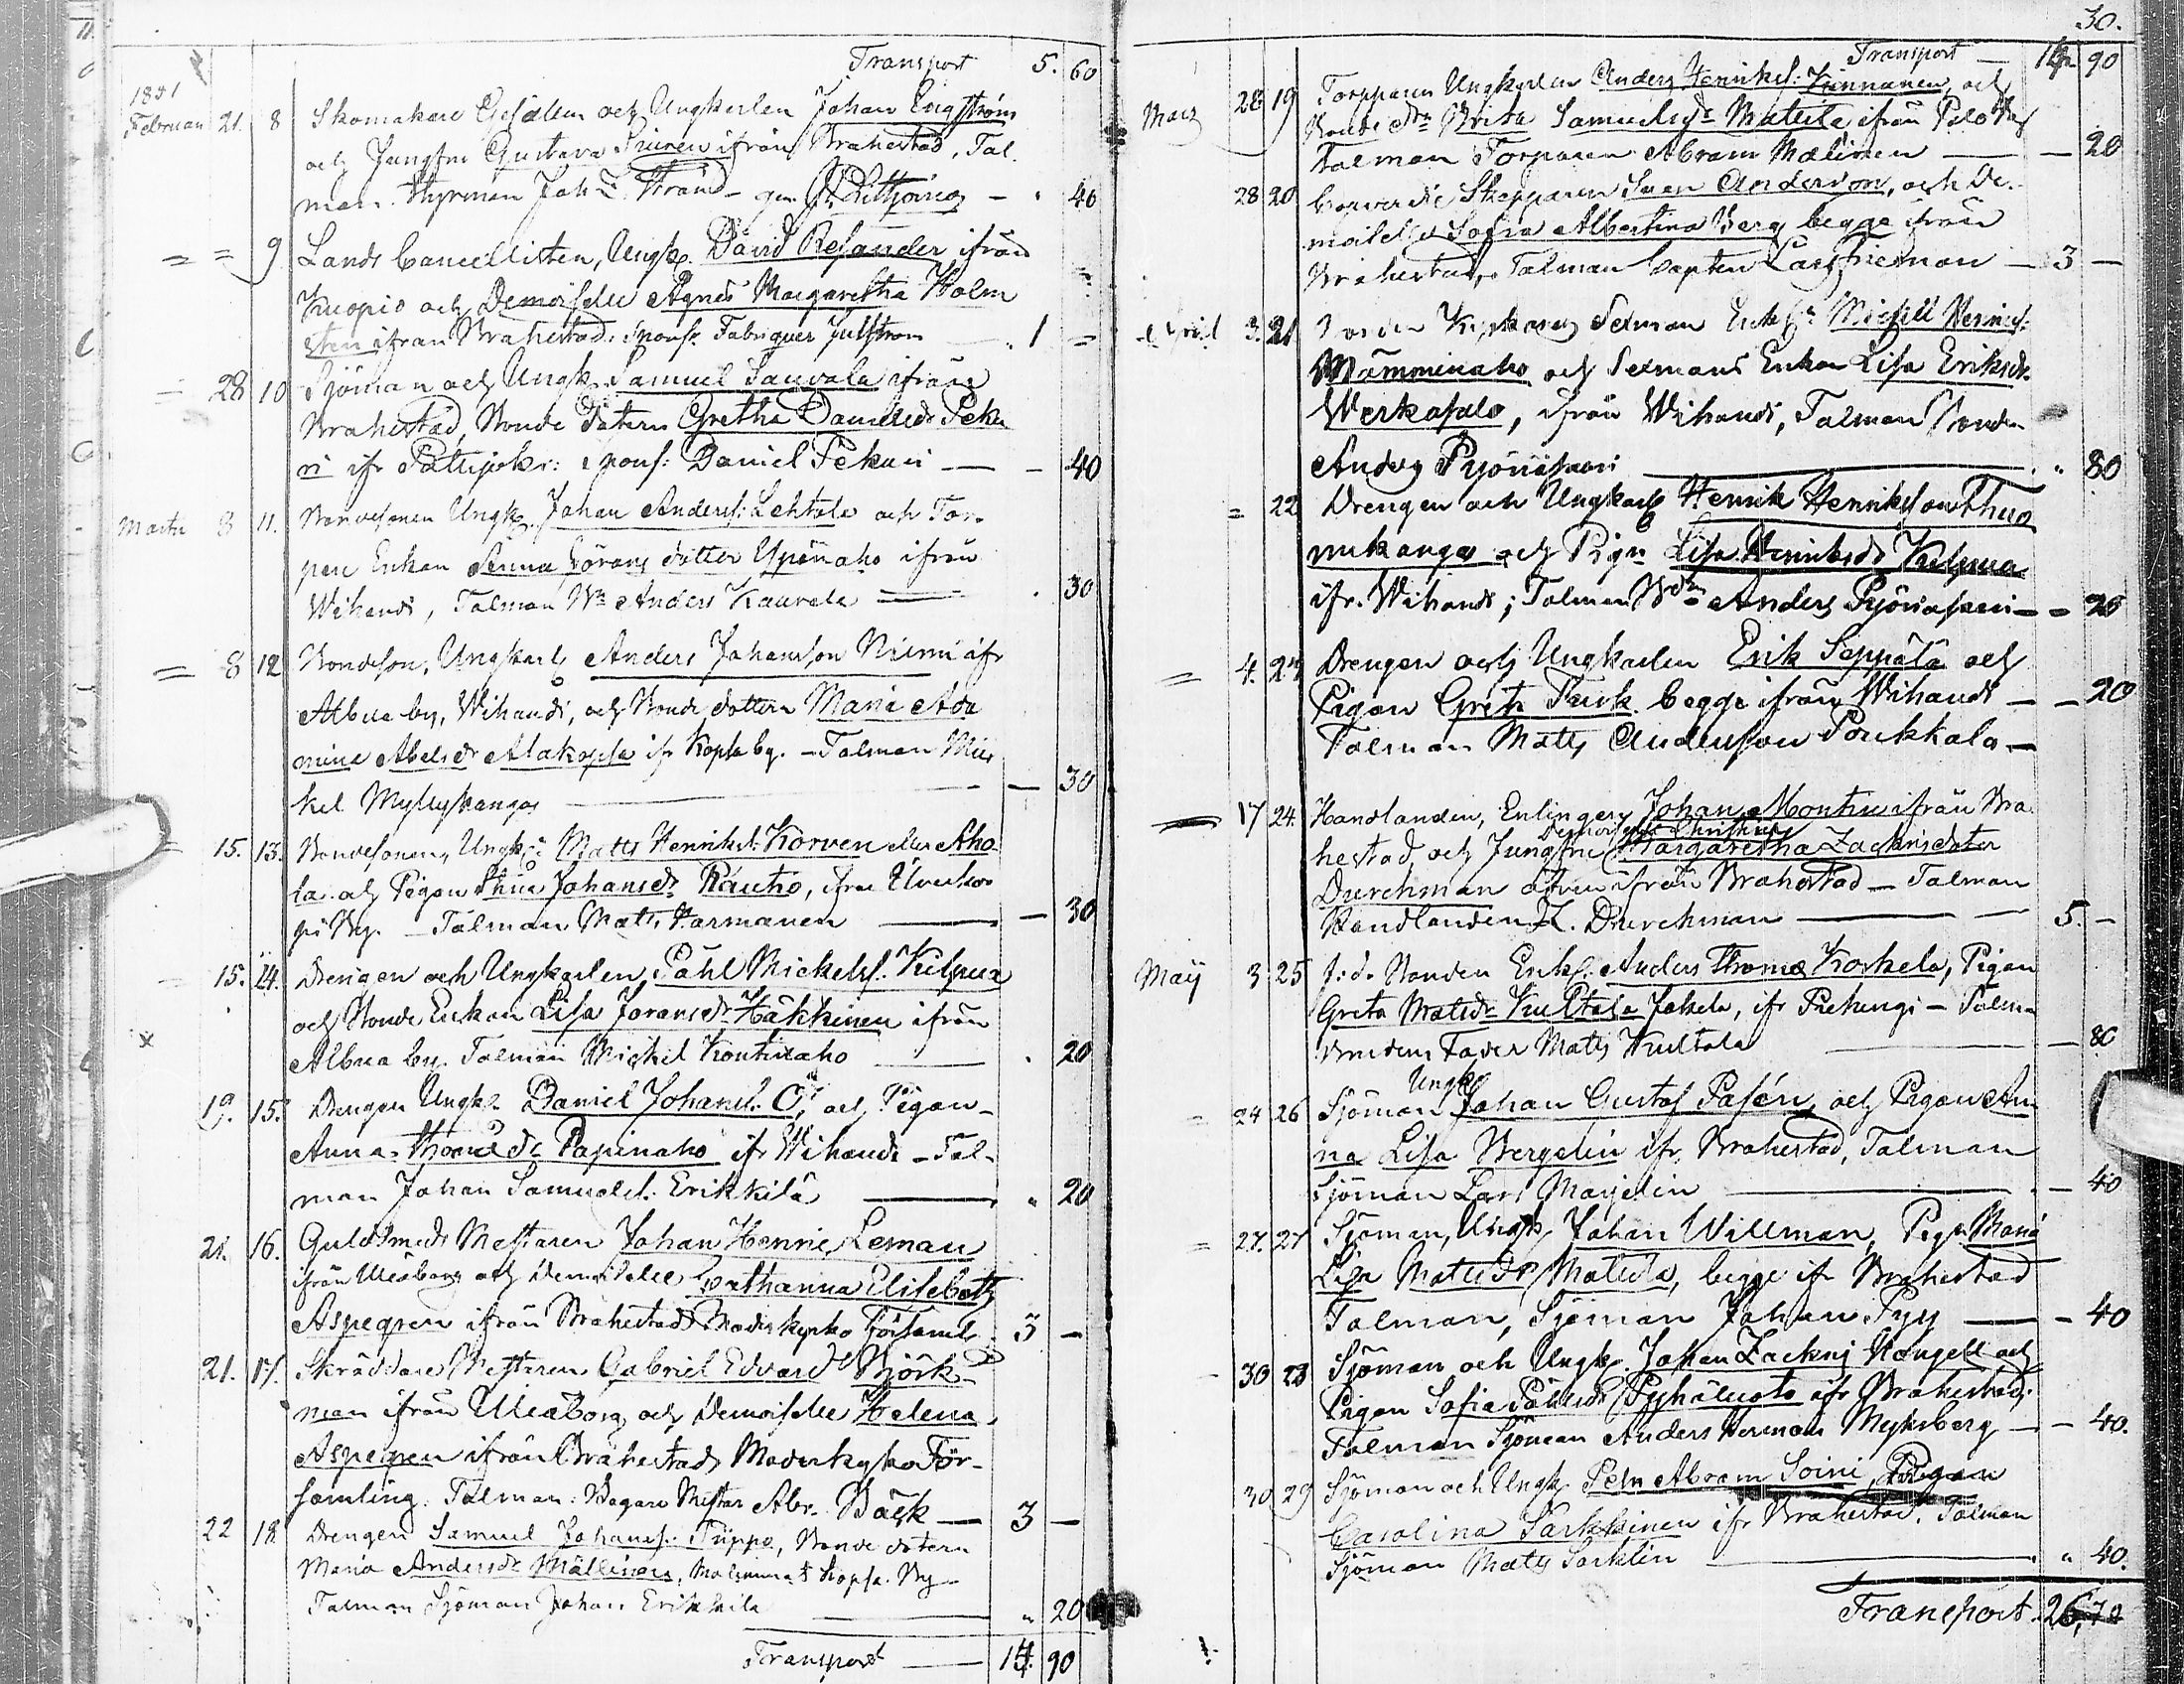 Transport 5. 60
1851
Februari 21. 8 Skomakare Gesällen och Ungkarlen Johan Engström
och Jungfru Gustava ifrån Brahestad, Tal.
man Styrman Joh Z. Strand - 40
= = 9 Lands Cancellisten, Ungk. David Resander ifrån
Kuopio och Demoiselle Agnes Margaretha Holm
sten ifrån Brahestad. spons. Fabriquer Julström " 1 =
= 28 10 Sjöman och Ungk. Samuel Sauvala ifrån
Brahestad, Bonde dotern Gretha Danielsdr Peku
ri ifr Pattijoki: spons: Daniel Pekuri - 40
Martii 8 11. Bondesonen Ungk. Johan Anders: Lehtola och Tor-
pare Enkan Görans dotter ifrån
Wihandi, Talman Anders Kauvala 30
= 8 12 Bondeson, Ungkarls Anders Johansson Niemi ifr
Albua by, Wihandi, och Bonde dottern Maria Ada
mine Abelsdr Alakopsa ifr Kopsa by. - Talman Mic
kel Myllykangas - 30
= 15. 13. Bondesonen, Ungk: Matts Henriks: Korven eller Aho
la och Pigan Johansdr Rautio, ifrån
pä By. - Talman Matts Harmanen - 30
= 15. 14. Drengen och Ungkarlen, Påhl Mickelss. Kulpua
och Bonde Enkan Lisa Joransdr Häkkinen ifrån
x Albua by. Talman Mickel Kontinaho 20
19. 15. Drengen Ungk. Daniel Johans. och Pigan
Anna Thomedr Papinaho ifr Wihandi - Tal-
man Johan Samuels. Erikkilä " 20
21. 16. Guldsmeds Mestaren Johan Henric Leman
ifrån Uleåborg och Demoiselle Cathanna Elisebeth
Aspegren ifrån Brahestad Moderkyrko Församl. 3 -
21. 17. Skräddare Mestaren Gabriel Edvard Björk-
man ifrån Uleåborg och Demoiselle Helena
Aspegren ifrån Brahestads Moderkyrko För-
samling. Talman: Bagare Mestar Abr. Bäck 3 -
22 18. Drengen Samuel Johans: Piippo, Bonde dotern
Maria Andersdr Mällinen, Kopsa By
Talman Sjöman Johan Erikkilä " 20
Transport 14. 90
30.
Transport 14 90
Mars 28 19 Torpparen Ungkarlen Anders Henriks: Kinnanen, och
Bonde dtr Brita Samuelsdr Matula ifrån
Talman Torparen Abram Mälinen - 20
28 20 Coopverdie Skepparen Sven Anderson, och De-
moiselle Sofia Albertina Berg begge ifrån
Brahestad, Talman Capten Lars Frieman 3 -
April 3. 21 Bonden Kyrkovärd Sexman Enkl: Mickel Henrics:
Mämminaho och Sexmans Enkan Lisa Eriksdr
Werkasalo, ifrån Wihandi, Talman Bonden
Anders Pyöriäsaari " 80
= 22 Drengen och Ungkarls Henrik Henriksson Thuo
mikangas och Pign Lisa Henriksdr Kulpua
ifr. Wihandi; Talman Anders - 20
= 4. 23 Drengen och Ungkarlen Erik Seppälä och
Pigan Greta Turk begge ifrån Wihandi - 20
Talman Matts Andersson Poukkala -
17 24. Handlanden, Enlingen Johan Montin ifrån Bra
Demoiselle Christina
hestad, och Jungfru Margaretha Zachrisdoter
Durchman äfven ifrån Brahestad - Talman
Handlanden Z. Durchman 5. -
Maij 3 25 f: d. Bonden Enkl. Anders Thome Koskela, Pigan
Greta Matsdr Kultala Jokela, ifr Piehingi - Talma
Brudens Fader Matts Kultala - 80
Ungk
= 24 26 Sjöman Johan Gustaf Pasén, och Pigan An
na Lisa Bergelin ifr. Brahestad, Talman
Sjöman Lars Marjelin - 40
= 27. 27 Sjöman, Ungk. Johan Willman, Pign Maria
Lisa Matsdr Matula, begge ifr Brahestad
Talman, Sjöman Johan Pyy - 40
30 28 Sjöman och Ungk. Johan Zachris Hongell och
Pigan Sofia Påhlsdr Pyhäluoto ifr Brahestad,
Talman Sjöman Anders Herman Myhrberg - 40.
30 29 Sjöman och Ungk. Pehr Abram Soini, Pigan
Carolina Sarkkinen ifr Brahestad. Talman
Sjöman Matts Sarklin " 40.
Transport. 26,70